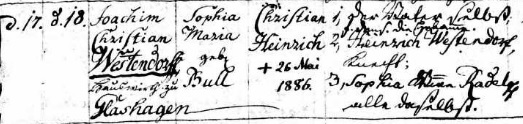 d. 17. d. 18. Joachim Sophia Christian 1, der Vater selbst.
Christian Maria Heinrich 2, Heinrich Westendorf,
Westendorff geb. + 26 Mai
Hauswirth zu Bull 1886. 3, Sophia Radel
Glashagen alle daselbst.